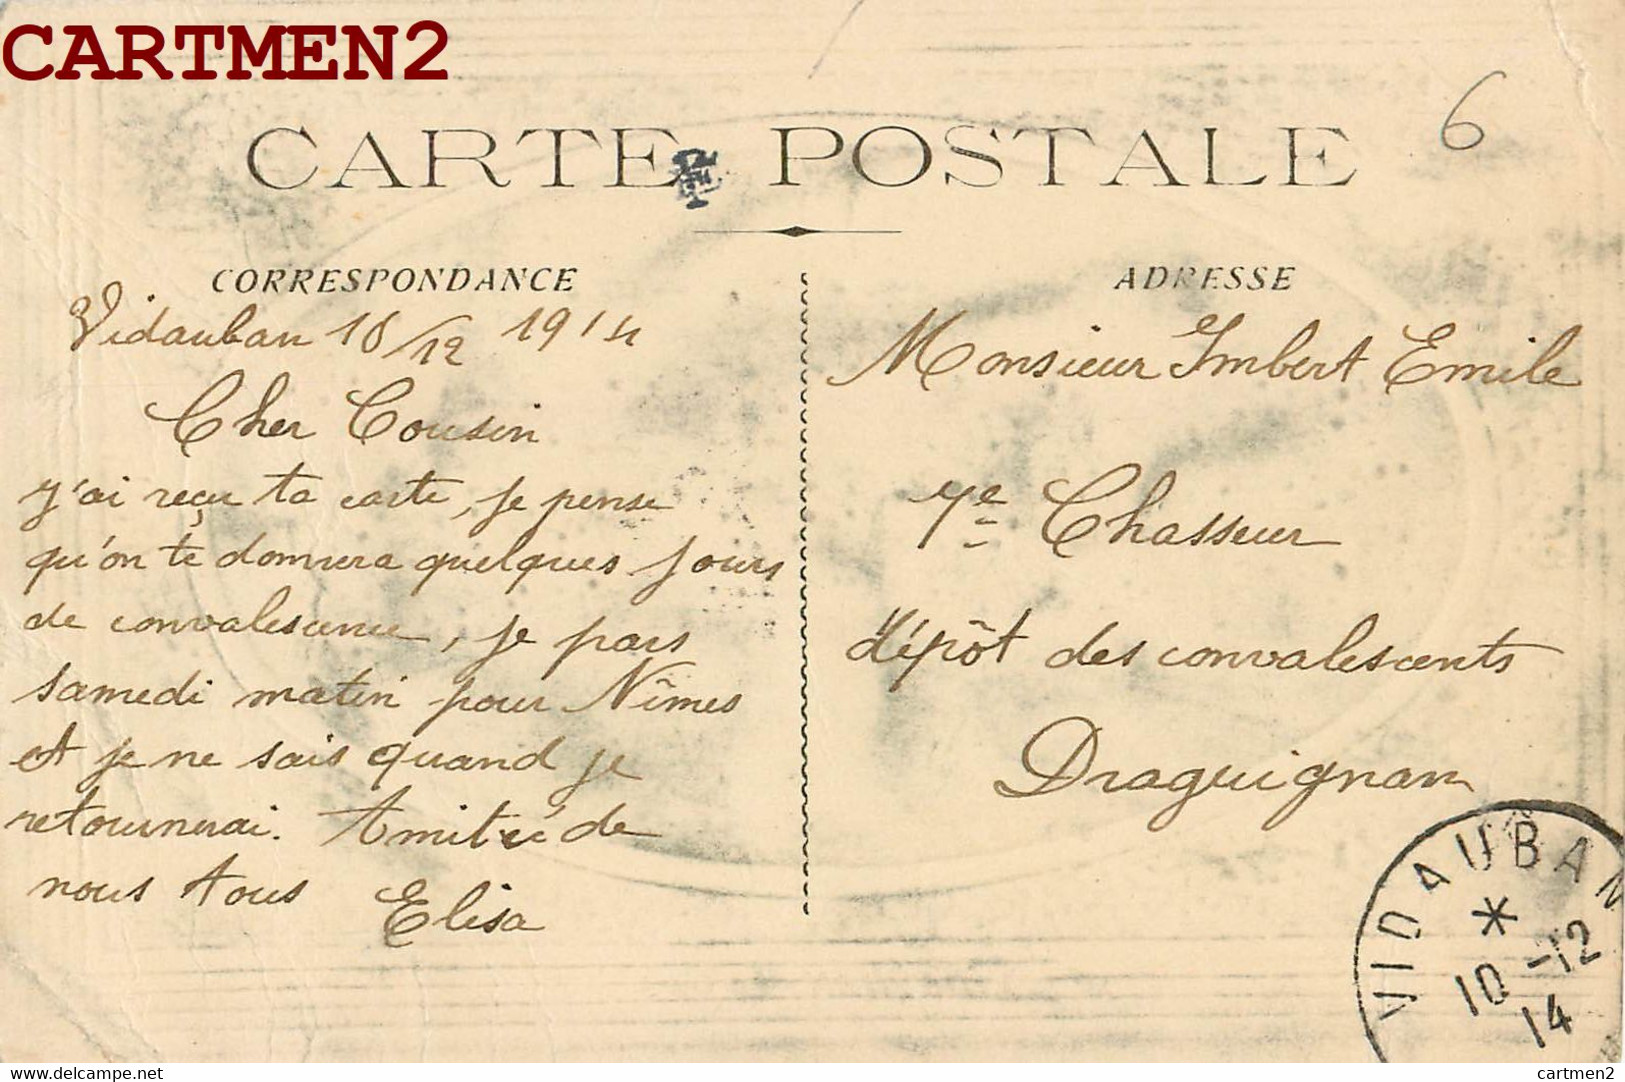 CARTMEN2
6
CARTE POSTALE
CORRESPONDANCE
Vidauban 10/12 1914
Cher Cousin
J'ai reçu ta carte, je pense
qu'on te donnera quelques jours
de convalescence, je pars
samedi matin pour Nîmes
et je ne sais quand je
retournerai. Amitié de
nous tous Elisa
ADRESSE
Monsieur Imbert Emile
7e Chasseur
dépôt des convalescents
Draguignan
VIDAUBAN
10 -12
14
delcampe.net
cartmen2